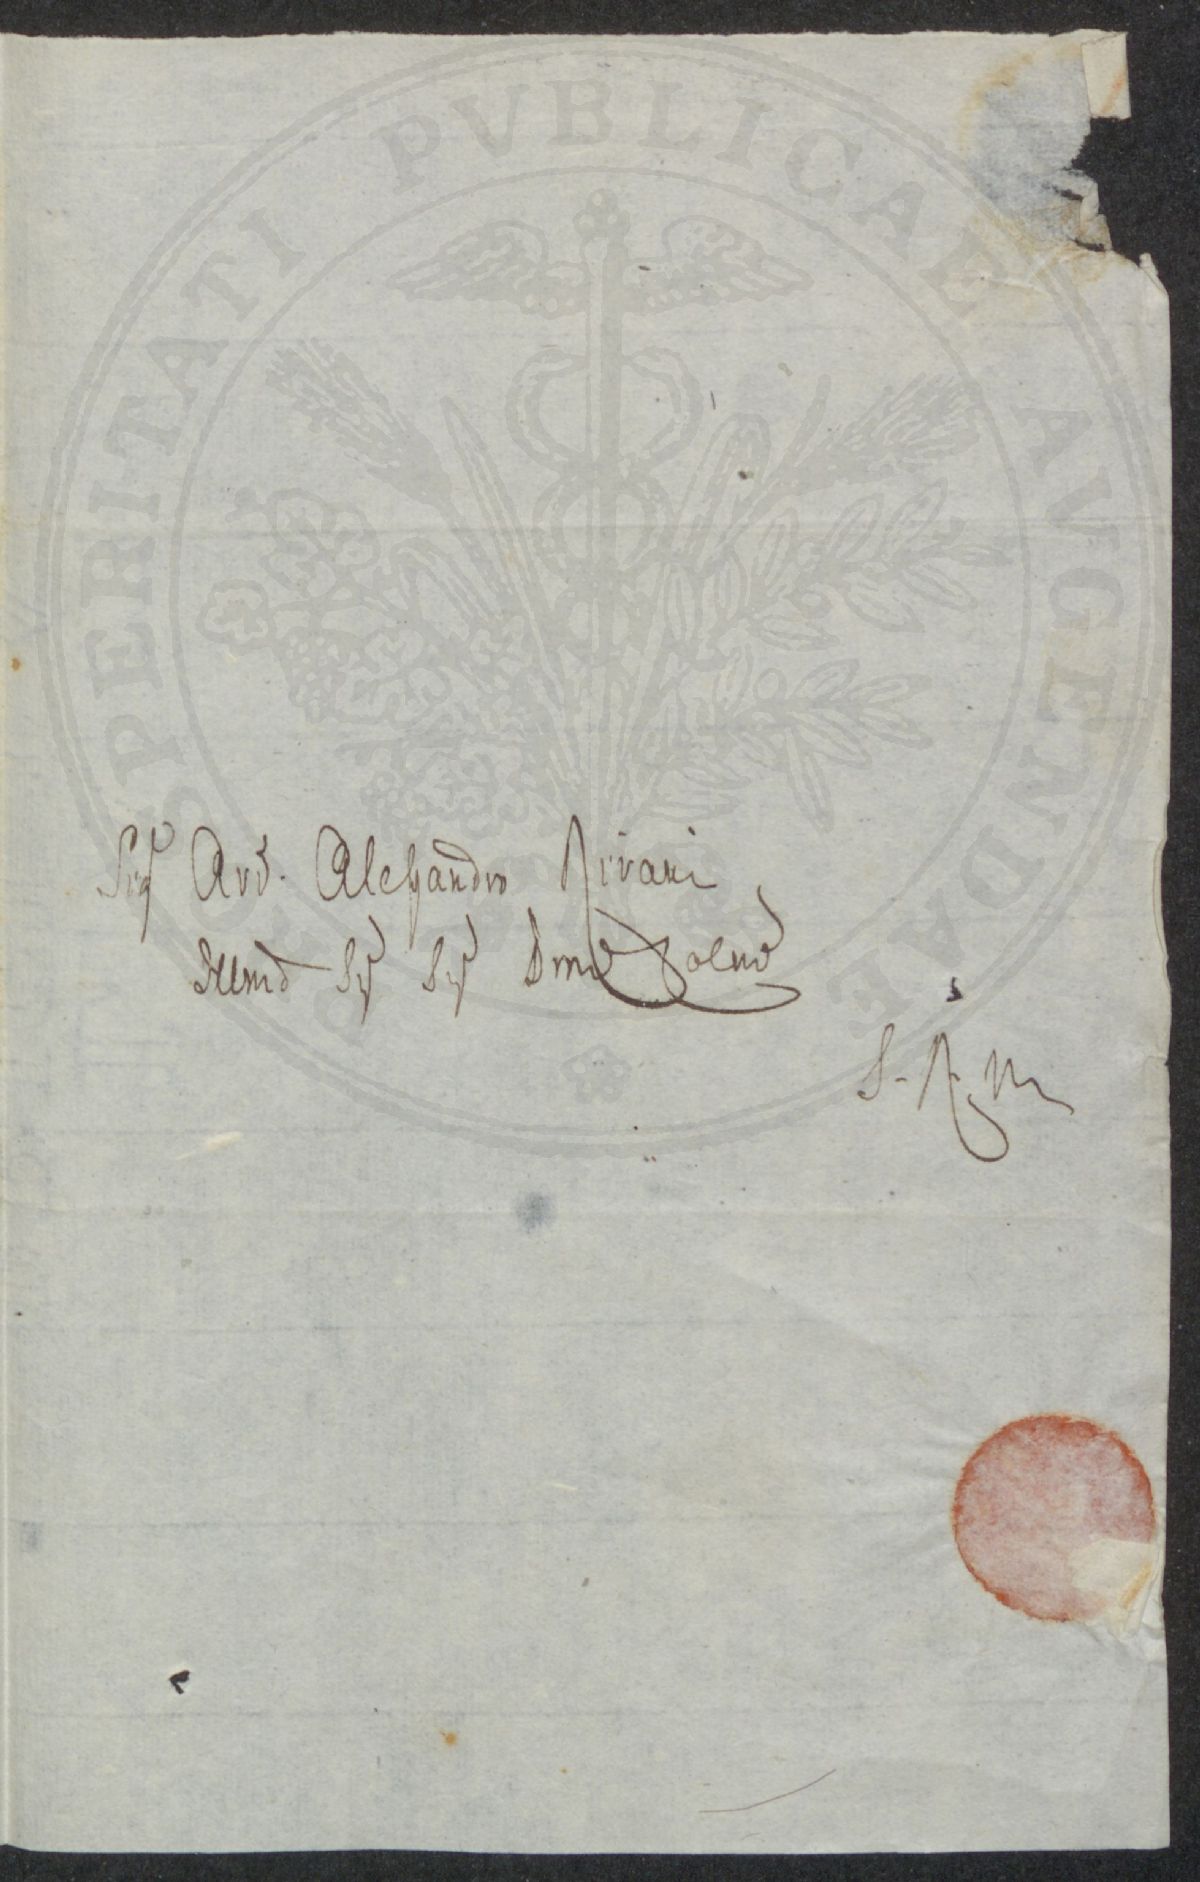 PROSPERITATI PVBLICAE AVGENDAE
Sigr Avv. Alessandro Rivani
Illmo Sigr Sigr Prone Colmo
S. R. M.